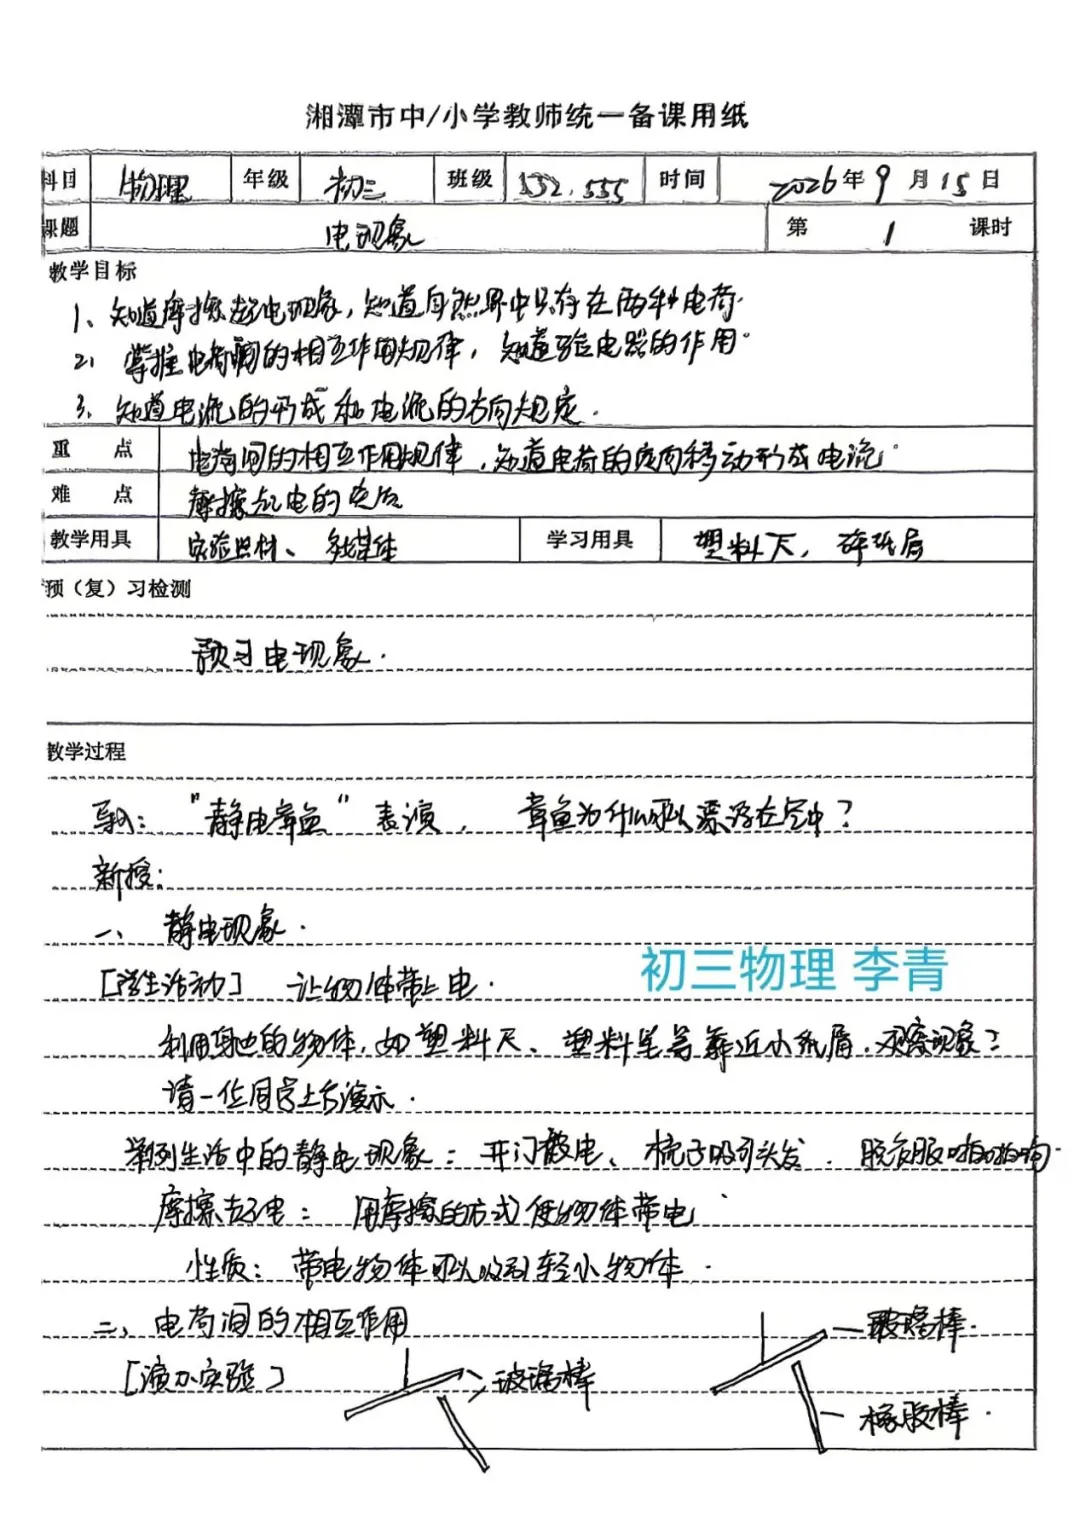 湘潭市中/小学教师统一备课用纸
科目 物理 年级 初三 班级 132.555 时间 2026年9月15日
课题 电现象 第1课时
教学目标
1、知道摩擦起电现象，知道自然界中只存在两种电荷.
2、掌握电荷间的相互作用规律，知道验电器的作用.
3、知道电流的形成和电流的方向规定.
重点 电荷间的相互作用规律，知道电荷的定向移动形成电流.
难点 摩擦起电的实质
教学用具 实验器材、多媒体 学习用具 塑料尺，碎纸屑
预（复）习检测
预习电现象.
教学过程
导入："静电章鱼"表演，章鱼为什么可以漂浮在空中？
新授：
一、静电现象.
[学生活动] 让物体带上电.
利用身边的物体，如塑料尺、塑料笔等靠近小纸屑.观察现象？
请一位同学上台演示.
举例生活中的静电现象：开门被电、梳子吸引头发.脱衣服啪啪响.
摩擦起电：用摩擦的方式使物体带电
性质：带电物体可以吸引轻小物体.
二、电荷间的相互作用
[演示实验] 玻璃棒 玻璃棒.
橡胶棒.
初三物理 李青